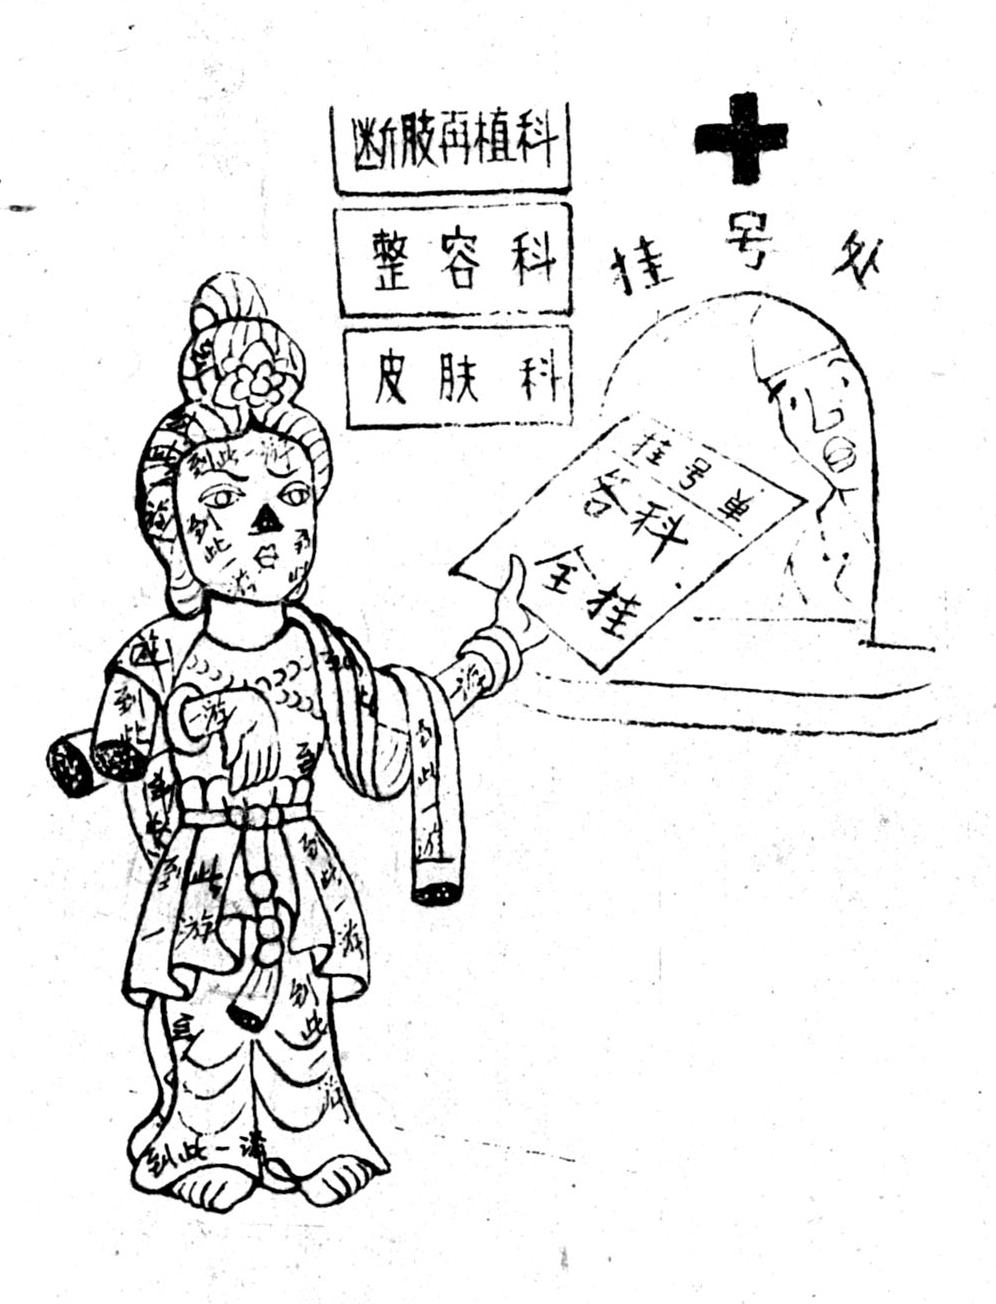 断肢再植科
整容科
皮肤科
挂号处
挂号单
各科
全挂
到此一游
到此一游
到此
一游
一游
到此一游
到此一游
到此一游
到此
到此一游